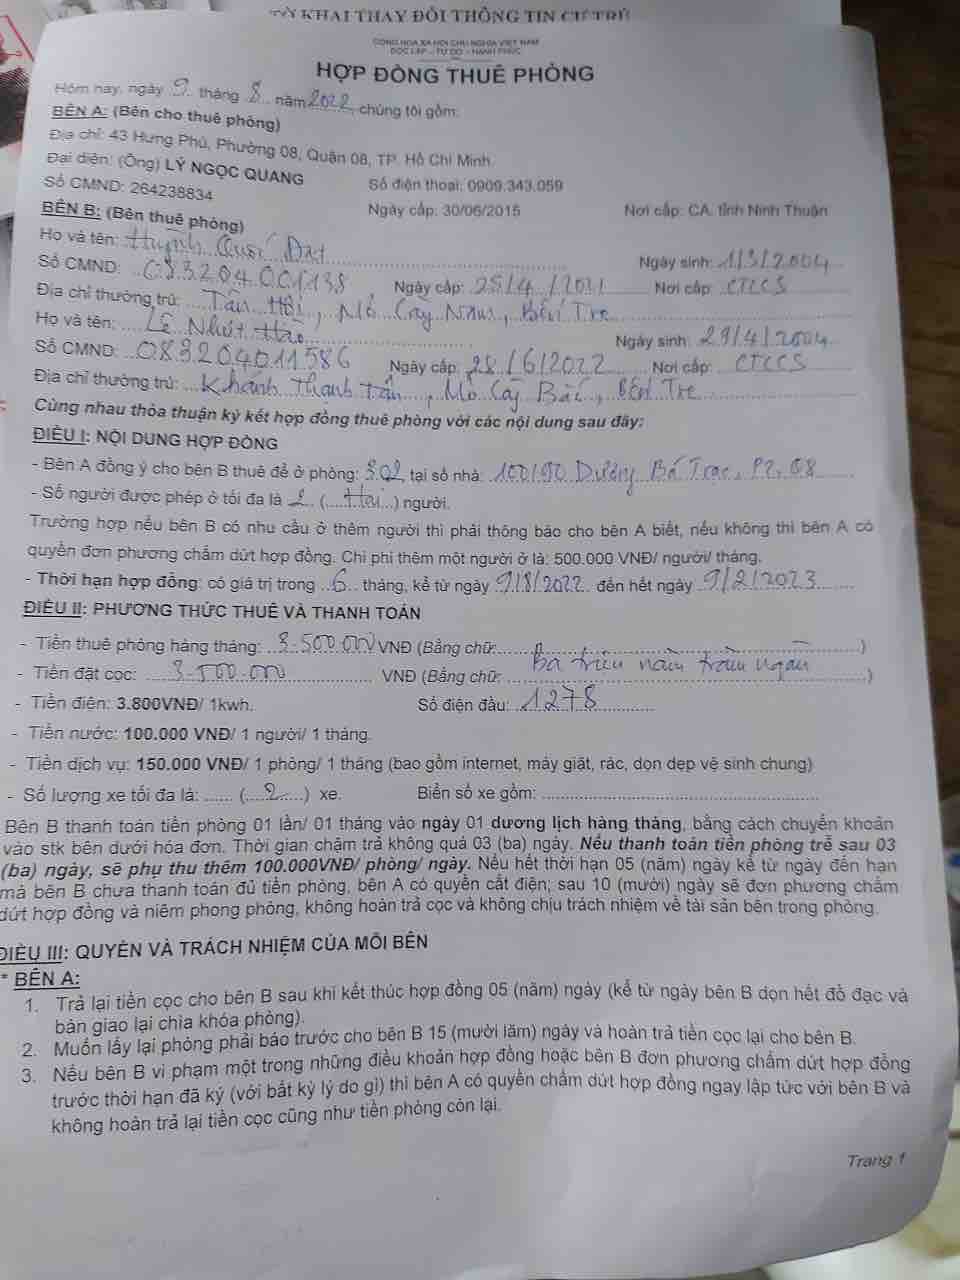 TỜ KHAI THAY ĐỔI THÔNG TIN CƯ TRÚ
CỘNG HÒA XÃ HỘI CHỦ NGHĨA VIỆT NAM
ĐỘC LẬP - TỰ DO - HẠNH PHÚC
HỢP ĐỒNG THUÊ PHÒNG
Hôm nay, ngày 9 tháng 8 năm 2022, chúng tôi gồm:
BÊN A: (Bên cho thuê phòng)
Địa chỉ: 43 Hưng Phú, Phường 08, Quận 08, TP. Hồ Chí Minh
Đại diện: (Ông) LÝ NGỌC QUANG Số điện thoại: 0909.343.059
Số CMND: 264238834 Ngày cấp: 30/06/2015 Nơi cấp: CA. tỉnh Ninh Thuận
BÊN B: (Bên thuê phòng)
Họ và tên: Huỳnh Quốc Đạt Ngày sinh: 1/3/2004
Số CMND: 083204001138 Ngày cấp: 25/4/2021 Nơi cấp: CTCCS
Địa chỉ thường trú: Tân Hội, Mỏ Cày Nam, Bến Tre
Họ và tên: Lê Nhựt Hào Ngày sinh: 29/4/2004
Số CMND: 083204011586 Ngày cấp: 28/6/2022 Nơi cấp: CTCCS
Địa chỉ thường trú: Khánh Thạnh Tân, Mỏ Cày Bắc, Bến Tre
Cùng nhau thỏa thuận ký kết hợp đồng thuê phòng với các nội dung sau đây:
ĐIỀU I: NỘI DUNG HỢP ĐỒNG
- Bên A đồng ý cho bên B thuê để ở phòng: 302 tại số nhà: 100/90 Dương Bá Trạc, P2, Q8
- Số người được phép ở tối đa là 2 (Hai) người.
Trường hợp nếu bên B có nhu cầu ở thêm người thì phải thông báo cho bên A biết, nếu không thì bên A có
quyền đơn phương chấm dứt hợp đồng. Chi phí thêm một người ở là: 500.000 VNĐ/ người/ tháng.
- Thời hạn hợp đồng: có giá trị trong 6 tháng, kể từ ngày 9/8/2022 đến hết ngày 9/2/2023
ĐIỀU II: PHƯƠNG THỨC THUÊ VÀ THANH TOÁN
- Tiền thuê phòng hàng tháng: 3.500.000 VNĐ (Bằng chữ: )
- Tiền đặt cọc: 3.500.000 VNĐ (Bằng chữ: Ba triệu năm trăm ngàn )
- Tiền điện: 3.800VNĐ/ 1kwh. Số điện đầu: 1278
- Tiền nước: 100.000 VNĐ/ 1 người/ 1 tháng.
- Tiền dịch vụ: 150.000 VNĐ/ 1 phòng/ 1 tháng (bao gồm internet, máy giặt, rác, dọn dẹp vệ sinh chung)
- Số lượng xe tối đa là: ...... (2) xe. Biển số xe gồm:
Bên B thanh toán tiền phòng 01 lần/ 01 tháng vào ngày 01 dương lịch hàng tháng, bằng cách chuyển khoản
vào stk bên dưới hóa đơn. Thời gian chậm trả không quá 03 (ba) ngày. Nếu thanh toán tiền phòng trễ sau 03
(ba) ngày, sẽ phụ thu thêm 100.000VNĐ/ phòng/ ngày. Nếu hết thời hạn 05 (năm) ngày kể từ ngày đến hạn
mà bên B chưa thanh toán đủ tiền phòng, bên A có quyền cắt điện; sau 10 (mười) ngày sẽ đơn phương chấm
dứt hợp đồng và niêm phong phòng, không hoàn trả cọc và không chịu trách nhiệm về tài sản bên trong phòng.
ĐIỀU III: QUYỀN VÀ TRÁCH NHIỆM CỦA MỖI BÊN
* BÊN A:
1. Trả lại tiền cọc cho bên B sau khi kết thúc hợp đồng 05 (năm) ngày (kể từ ngày bên B dọn hết đồ đạc và
bàn giao lại chìa khóa phòng).
2. Muốn lấy lại phòng phải báo trước cho bên B 15 (mười lăm) ngày và hoàn trả tiền cọc lại cho bên B.
3. Nếu bên B vi phạm một trong những điều khoản hợp đồng hoặc bên B đơn phương chấm dứt hợp đồng
trước thời hạn đã ký (với bất kỳ lý do gì) thì bên A có quyền chấm dứt hợp đồng ngay lập tức với bên B và
không hoàn trả lại tiền cọc cũng như tiền phòng còn lại.
Trang 1